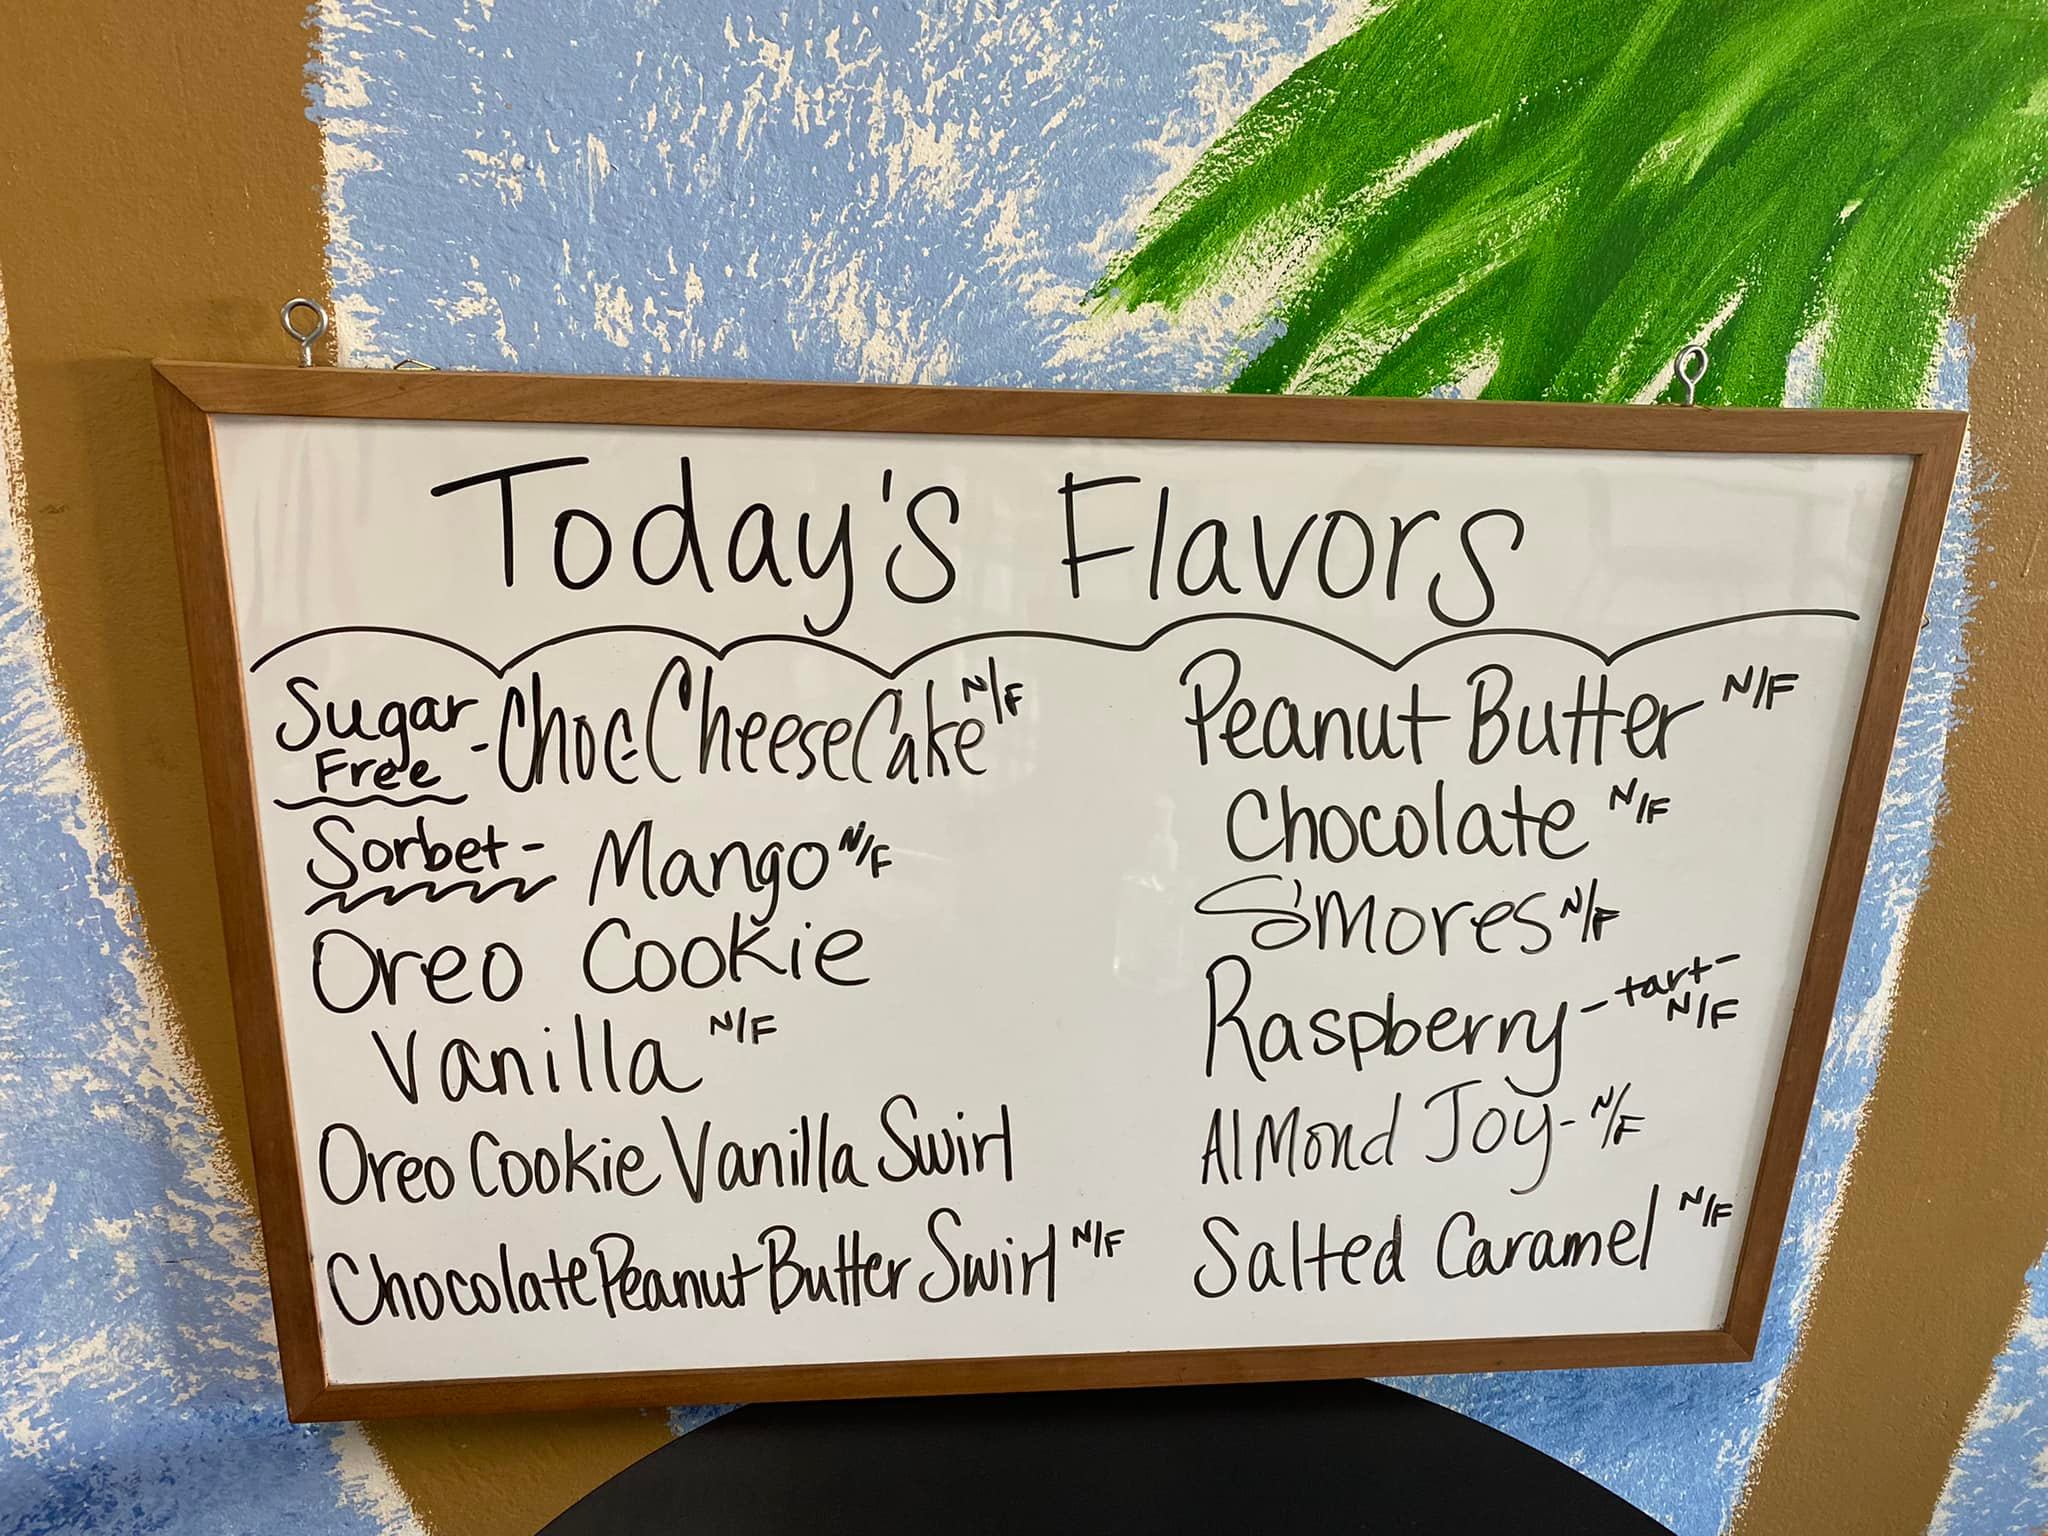 Today's Flavors
Sugar Free - Choc CheeseCake N/F
Sorbet - Mango N/F
Oreo Cookie
Vanilla N/F
Oreo Cookie Vanilla Swirl
Chocolate Peanut Butter Swirl N/F
Peanut Butter N/F
Chocolate N/F
S'mores N/F
Raspberry - tart - N/F
Almond Joy - N/F
Salted Caramel N/F